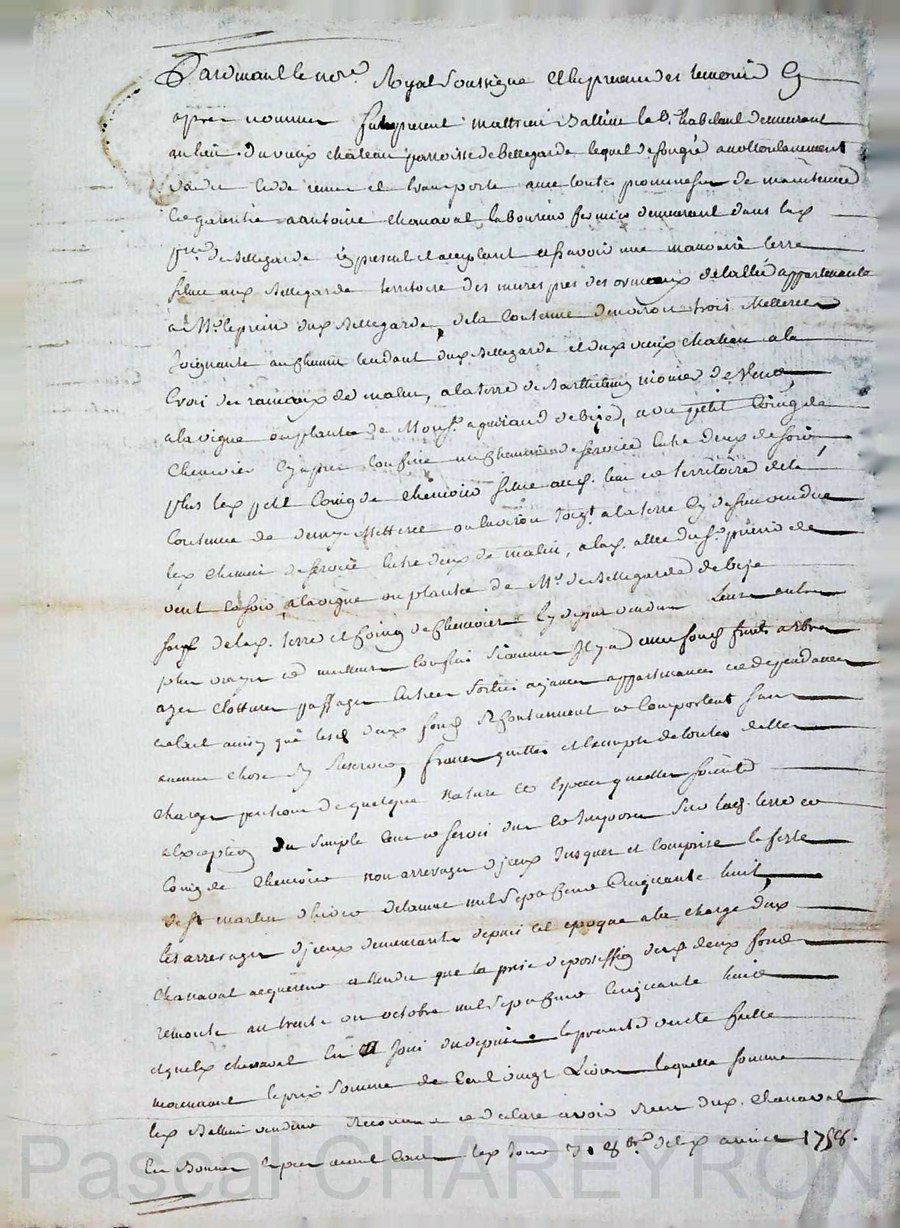 Pardevant le no.re Royal soussigné et en presence des temoins Cy
apres nommes fut present Mathieu Ballini habitant demeurant
au lieu du vieux château parroisse de Bellegarde lequel de son gré a volontairement
vendu cede remet et transporte avec toutes promesses de maintenue
et garentie a antoine Chanaval laboureur fermier demeurant dans la d.
p.sse de Bellegarde icy present et acceptant scavoir une mauvaise terre
situee aux Bellegarde territoire des mures pres des ormeaux de la allée appartenante
a M. le prieur dud. Bellegarde, de la Contenue denviron trois Metterees
Joignante au chemin tendant dud. Bellegarde et dud. vieux chateau a la
Croix des rameaux de matin, a la terre de Barthelemy monier de
a la vigne ou plantée de Mons.r aguiraud de bize, a un petit Coing de
Chenevier Cy apres Confiné un chemin de service entre deux de soir
plus led. petit Coing de chenevier situé aud. lieu et territoire de la
Contenue de demy Metteree ou environ Joig.t a la terre Cy dessus vendue
led. chemin de service entre deux de matin, a la d. allée du S.r prieur de
vent et soir, a la vigne ou plantée de M.r de Bellegarde de bize
sauf de lad. terre et Coing de chenevier Cy dessus vendus Leurs autres
plus vrays et meilleurs confins si aucuns Il y a avec fonds fruits arbres
ayes clotures passages entrées sorties aysances appartenances et dependances
et tout ainsy que lesd. deux fonds se consistent et comportent sans
aucune chose En Reserver, francs quittes et Exempts de toutes dettes
charges pensions de quelque nature et espece quelles soient
a lexception du simple cens et servis du et imposé sur lad. terre et
Coing de Chenevier non arreragés d'jceux Jusques et comprise la feste
de St martin dhiver de lannée mil sept cens Cinquante huit,
les arrerages d'jceux demeurants depuis cet epoque a la charge dud.
Chanaval acquereur attendu que la prise de possession desd. deux fonds
remonte au trente un octobre mil sept cens Cinquante huit
et que led. chanaval En a Joui du depuis la presente vente faitte
moyennant le prix et somme de Cent vingt Livres laquelle somme
led. Ballini vendeur Reconnoit et declare avoir Receu dud. Chanaval
En Bonnes especes avant Cour led. Jour 31 8bre de lad. année 1758.
Pascal CHAREYRON